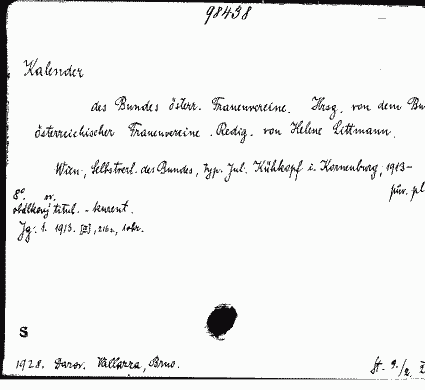 98438
Kalender
des Bundes österr. Frauenvereine. Hrsg. von dem Bu
österreichischer Frauenvereine. Redig. von Helene Littmann.
Wien, Selbstverl. des Bundes, typ. Jul. Kühkopf i. Korneuburg, 1913-
pův. pl
8°. ov.
obálkový titul. - kurent.
Jg. 1. 1913. [II], 216 s, 1 obr.
S
1928. Darov. Wallarra, Brno.
St. 9./2.